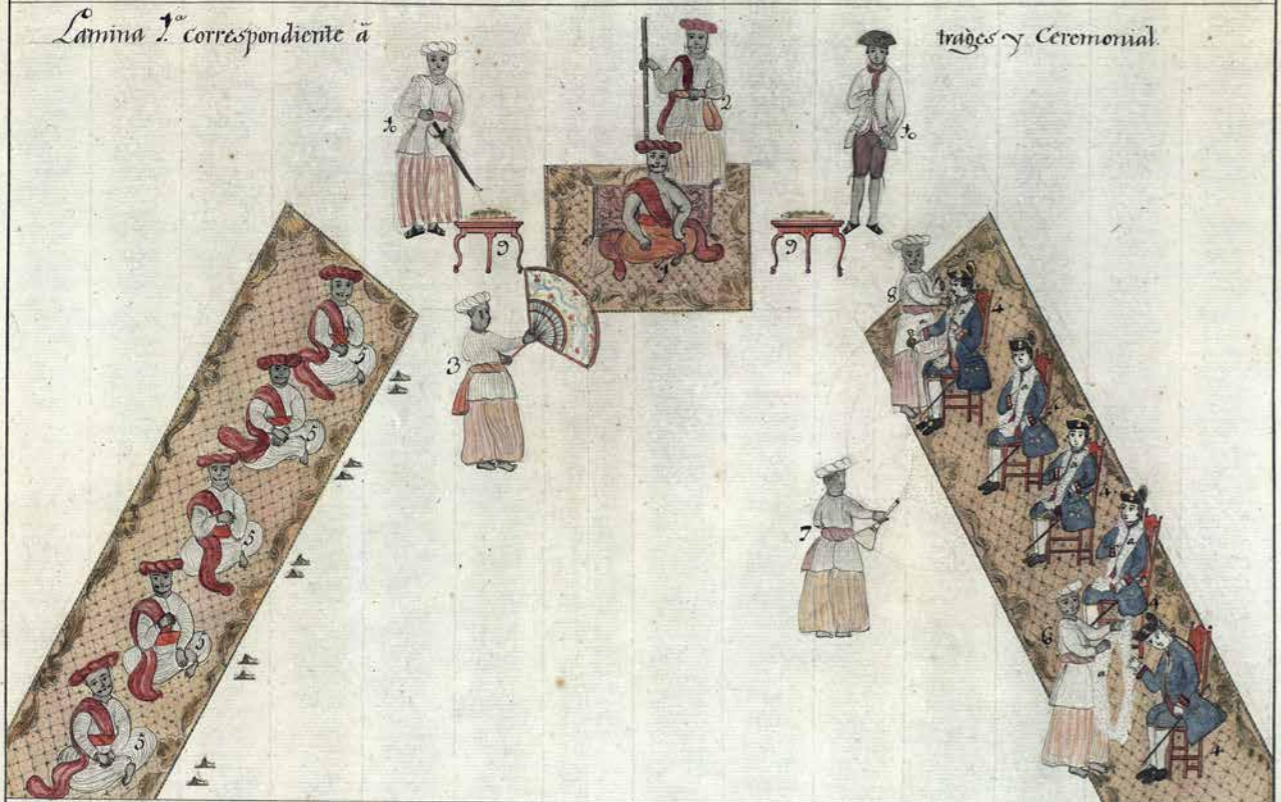 Lamina 1.ª correspondiente á trages y Ceremonial.
2
10 10
1
9 9
8 4
3 5
4
5
4
5
7 4
5 6
a
5 a
4